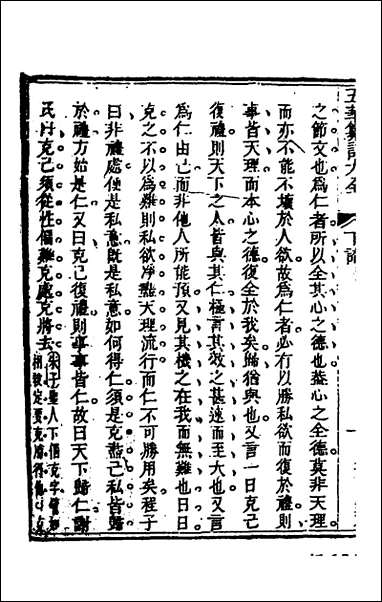 五華纂訂大全 下論
之節文也為仁者所以全其心之德也葢心之全德莫非天理
而亦不能不壞於人欲故為仁者必有以勝私欲而復於禮則
事皆天理而本心之德復全於我矣歸猶與也又言一日克己
復禮則天下之人皆與其仁極言其效之甚速而至大也又言
為仁由己而非他人所能預又見其機之在我而無難也日日
克之不以為難則私欲淨盡天理流行而仁不可勝用矣程子
曰非禮處便是私意旣是私意如何得仁須是克盡己私皆歸
於禮方始是仁又曰克己復禮則事事皆仁故曰天下歸仁謝
氏曰克己須從性偏難克處克將去
朱子聖人下個克字譬如
相殺定要克勝得他